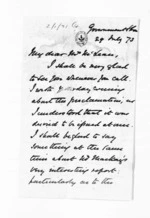 Government House
29 July 73
My dear Mr McLean,
I shall be very glad
to see you whenever you call.
I wrote yesterday evening
about the proclamation, as
I understood that it was
decided to be issued at once.
I shall be glad to say
something at the same
time about Mr Mackay's
very interesting report
particularly as to the